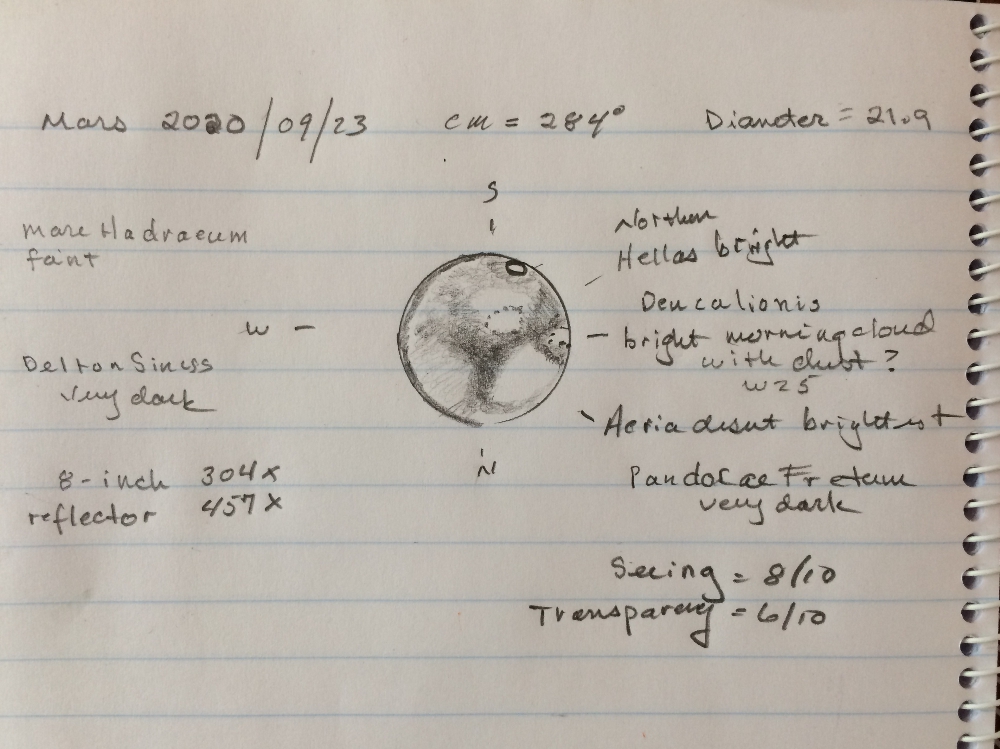 Mars 2020/09/23 cm = 284° Diameter = 21.9
S
mare Hadraeum
faint
Northern
Hellas bright
W
Deucalionis
bright morning cloud
with dust?
W25
Delton Sinuss
very dark
Aeria desert brightest
N
8-inch 304x
reflector 457x
Pandorae Fretum
very dark
Seeing = 8/10
Transparency = 6/10